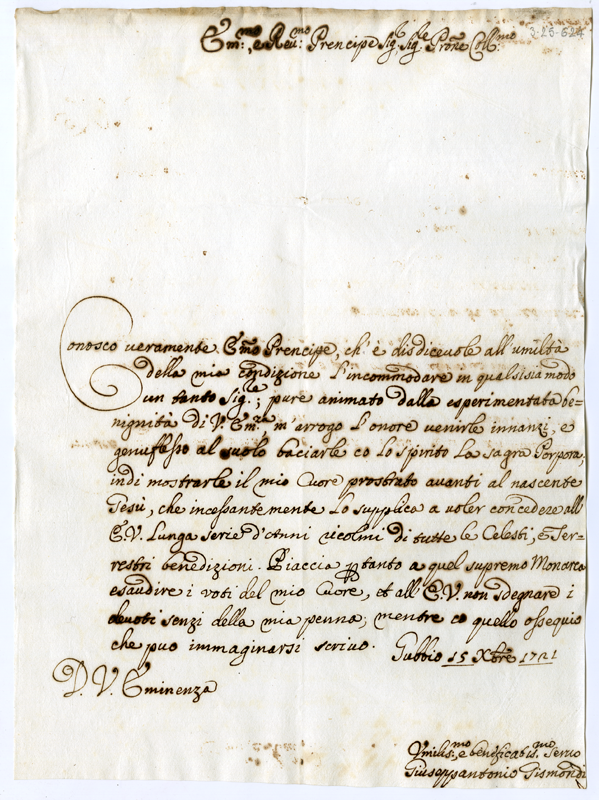 Em:mo, e Reu:mo Prencipe Sig:r, Sig:re Prõne Coll:mo
3-25-624
Conosco veramente Em̃o Prencipe, ch' è disdicevole all' umiltà
della mia condizione l'incommodare in qualsisia modo
un tanto Sig:re; pure animato dalla esperimentata be=
nignità di V. Em:za m' arrogo l'onore venirle innanzi, e
genuflesso al suolo baciarle co lo spirito la sagra Porpora,
indi mostrarle il mio Cuore prostrato avanti al nascente
Gesù, che incessantemente lo supplica a voler concedere all'
E.V. lunga serie d'Anni ricolmi di tutte le Celesti, e Ter=
restri benedizioni. Piaccia ꝑ tanto a quel supremo Monarca
esaudire i voti del mio Cuore, et all' E.V. non sdegnare i
devoti senzi della mia penna, mentre co quello ossequio
che puo immaginarsi scrivo.
Gubbio 15 Xbre 1721
D. V. Eminenza
Vmilis:mo, e beneficatis:mo Servo
Giuseppantonio Gismondi